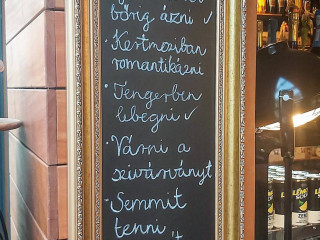 bőrig ázni ✓
· Kertmoziban
romantikázni
· Tengerben
lebegni ✓
· Várni a
szivárványt
· Semmit
tenni